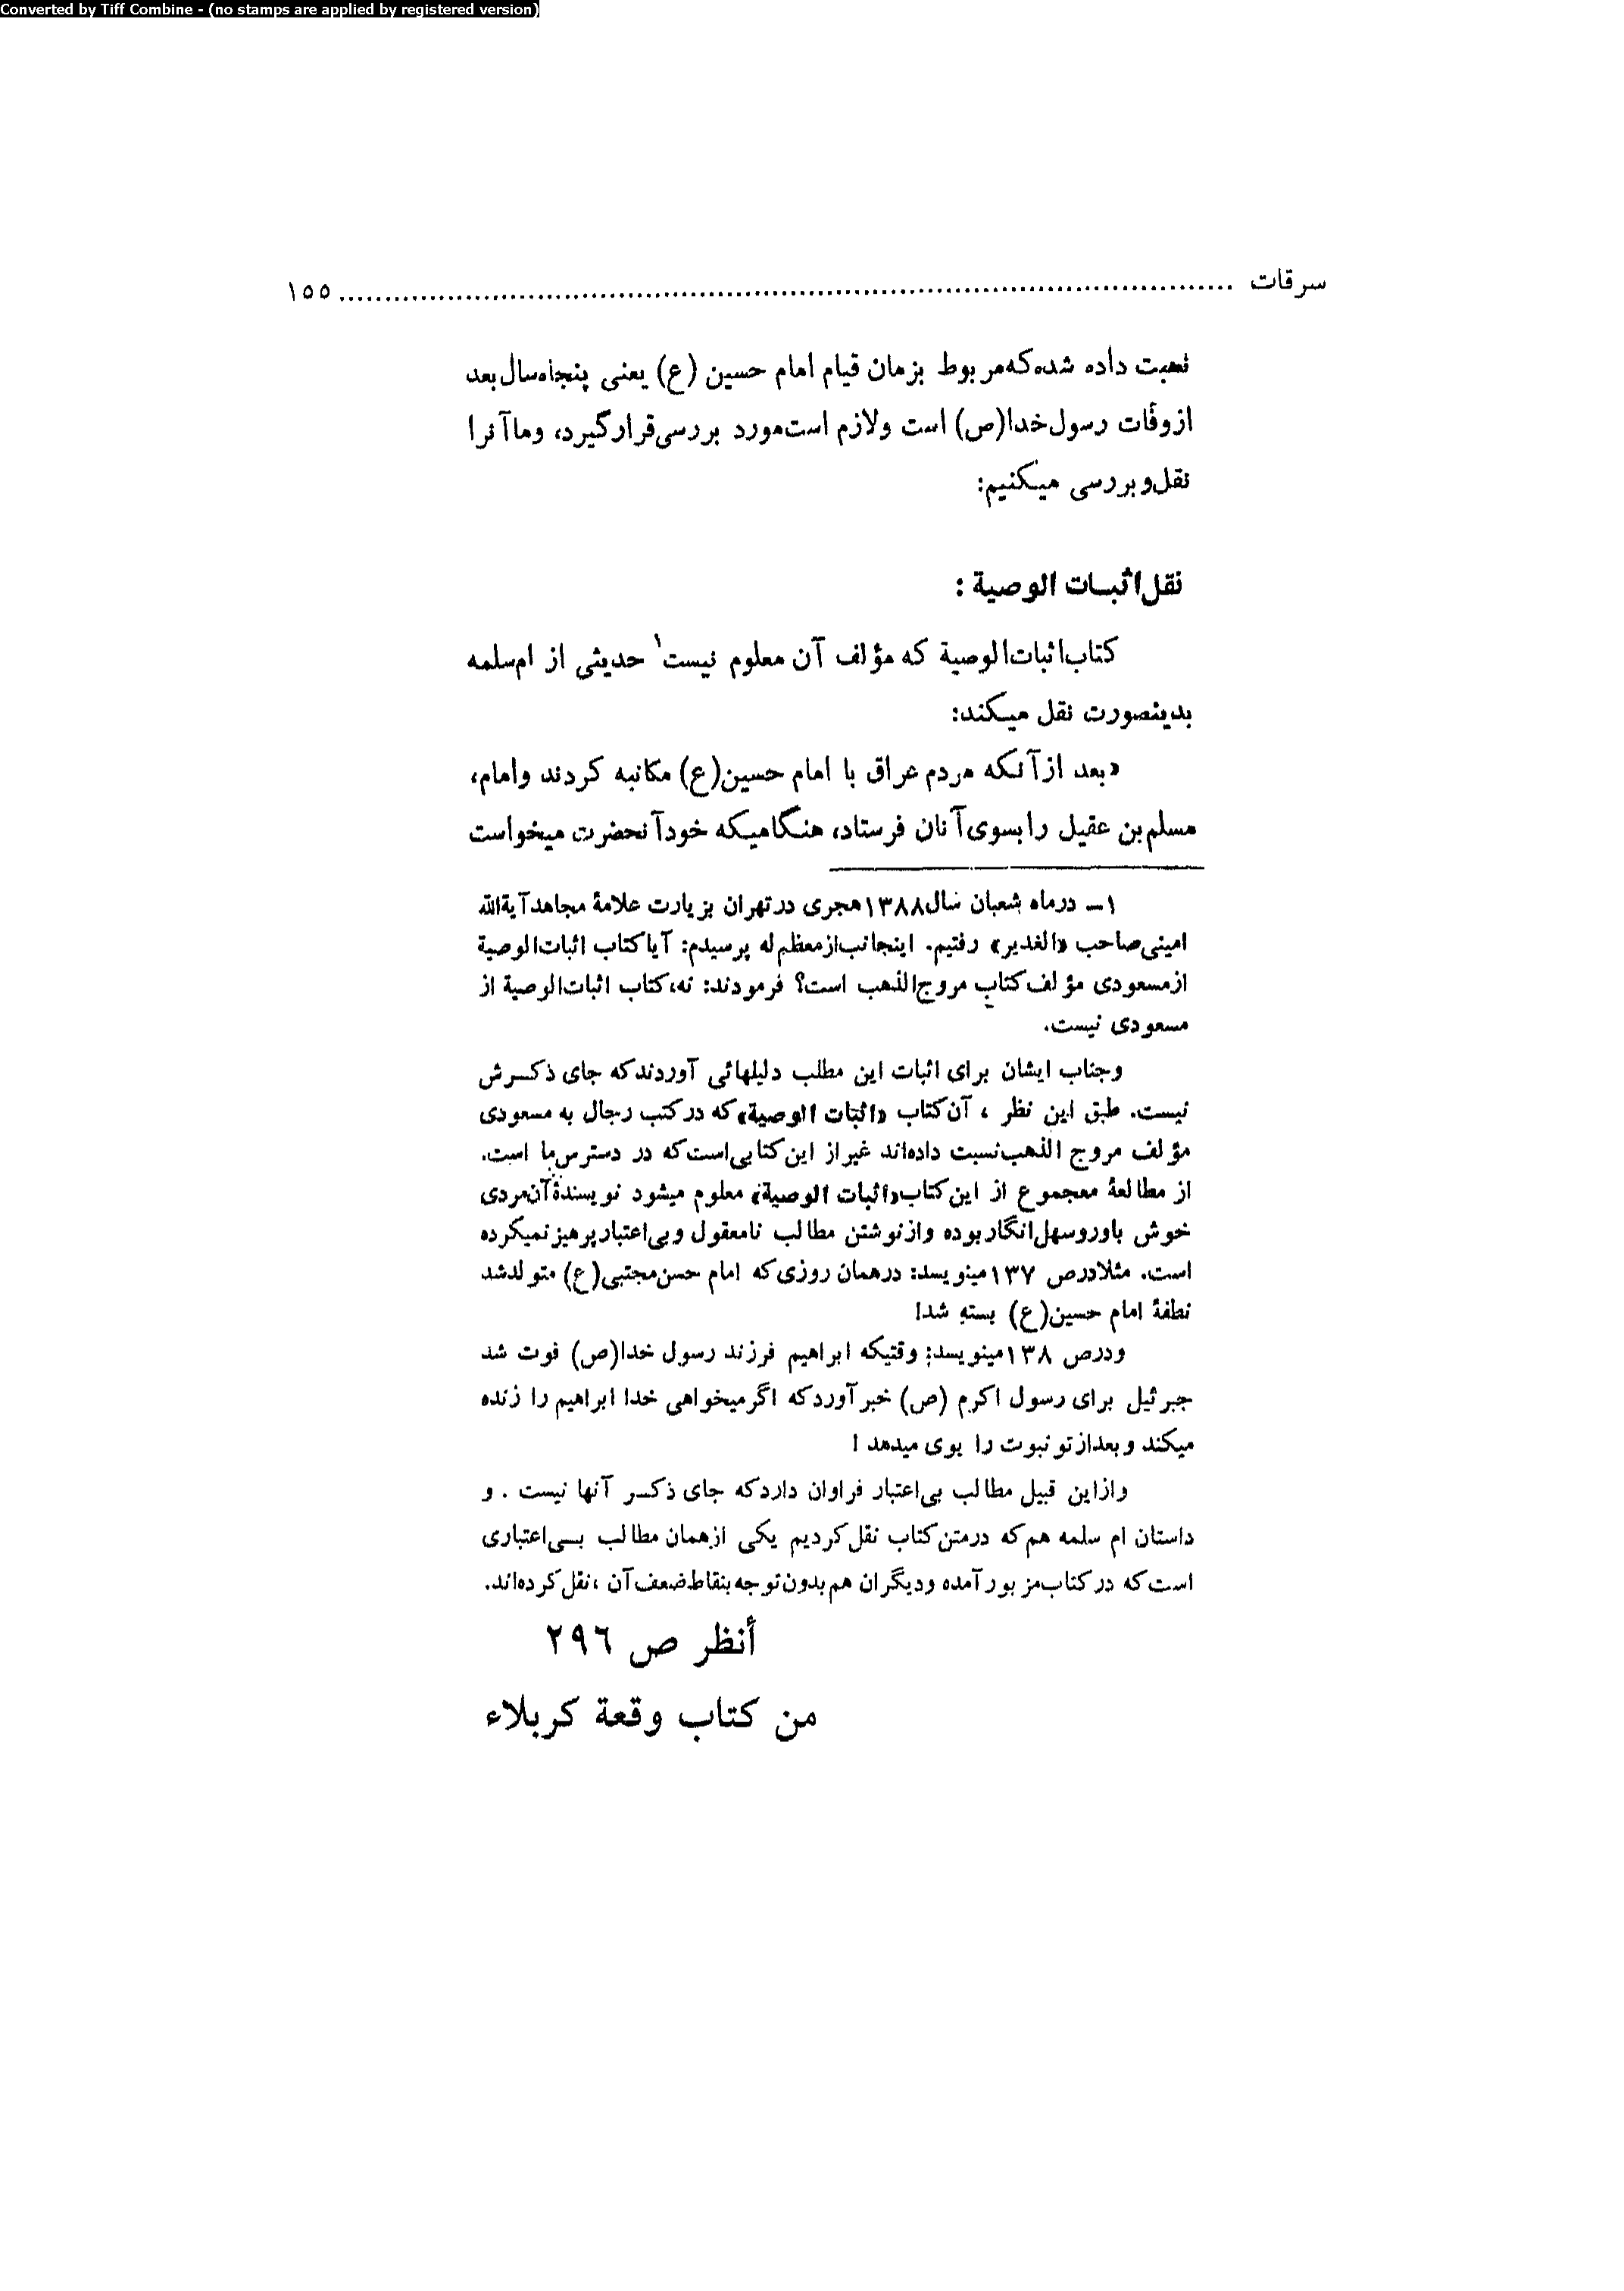 Converted by Tiff Combine - (no stamps are applied by registered version)
سرقات ........................................................................................... ١٥٥
نسبت داده شده‌که‌مربوط بزمان قیام امام حسین (ع) یعنی پنجاه‌سال‌بعد
ازوفات رسول‌خدا(ص) است ولازم است‌مورد بررسی‌قرارگیرد، وماآنرا
نقل‌وبررسی میکنیم:
نقل‌اثبات الوصیة :
کتاب‌اثبات‌الوصیة که مؤلف آن معلوم نیست۱ حدیثی از ام‌سلمه
بدینصورت نقل میکند:
«بعد ازآنکه مردم عراق با امام حسین(ع) مکاتبه کردند وامام،
مسلم‌بن عقیل رابسوی‌آنان فرستاد، هنگامیکه خودآنحضرت میخواست
۱- درماه شعبان سال۱۳۸۸هجری درتهران بزیارت علامهٔ مجاهدآیةالله
امینی‌صاحب «الغدیر» رفتیم. اینجانب‌ازمعظم‌له پرسیدم: آیاکتاب اثبات‌الوصیة
ازمسعودی مؤلف‌کتاب مروج‌الذهب است؟ فرمودند: نه،کتاب اثبات‌الوصیة از
مسعودی نیست.
وجناب ایشان برای اثبات این مطلب دلیلهائی آوردندکه جای ذکرش
نیست. طبق این نظر ، آن‌کتاب «اثبات الوصیة»که درکتب رجال به مسعودی
مؤلف مروج الذهب‌نسبت داده‌اند غیراز این‌کتابی‌است‌که در دسترس‌ما است.
از مطالعهٔ مجموع از این‌کتاب«اثبات الوصیة» معلوم میشود نویسندهٔ‌آن‌مردی
خوش باوروسهل‌انگاربوده وازنوشتن مطالب نامعقول وبی‌اعتبارپرهیزنمیکرده
است. مثلادرص ۱۳۷مینویسد: درهمان روزی‌که امام حسن‌مجتبی(ع) متولدشد
نطفهٔ امام حسین(ع) بسته شد!
ودرص ۱۳۸مینویسد: وقتیکه ابراهیم فرزند رسول خدا(ص) فوت شد
جبرئیل برای رسول اکرم (ص) خبرآوردکه اگرمیخواهی خدا ابراهیم را زنده
میکند وبعدازتونبوت را بوی میدهد !
وازاین قبیل مطالب بی‌اعتبار فراوان داردکه جای ذکر آنها نیست . و
داستان ام سلمه هم‌که درمتن‌کتاب نقل‌کردیم یکی ازهمان مطالب بی‌اعتباری
است‌که درکتاب‌مزبورآمده ودیگران هم‌بدون‌توجه‌بنقاط‌ضعف‌آن ،نقل‌کرده‌اند.
أنظر ص ٢٩٦
من كتاب وقعة كربلاء